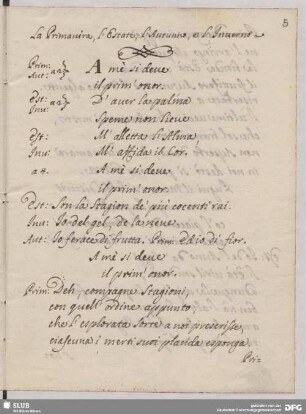 5
La Primavera, l'Estate, l'Autunno, e l'Inverno
Prim: Aut: a 2 A mè si deve
il prim' onor.
Est: Inv: a 2 D' aver la palma
Speme non lieve
Est: M' alletta l'Alma,
Inv: M' affida il Cor.
a 4. A mè si deve
il prim' onor.
Est: Son la Stagion de' più cocenti rai.
Inv: Io del gel, de la neve.
Aut: Io ferace di frutta, Prim: ed io di fior.
A mè si deve
il prim' onor.
Prim: Deh, compagne Stagioni,
con quell' ordine appunto,
che l' esplorata Sorte a noi prescrisse,
ciascuna i merti suoi placida esponga.
Pri-
SLUB
Wir führen Wissen.
gefördert von der
DFG